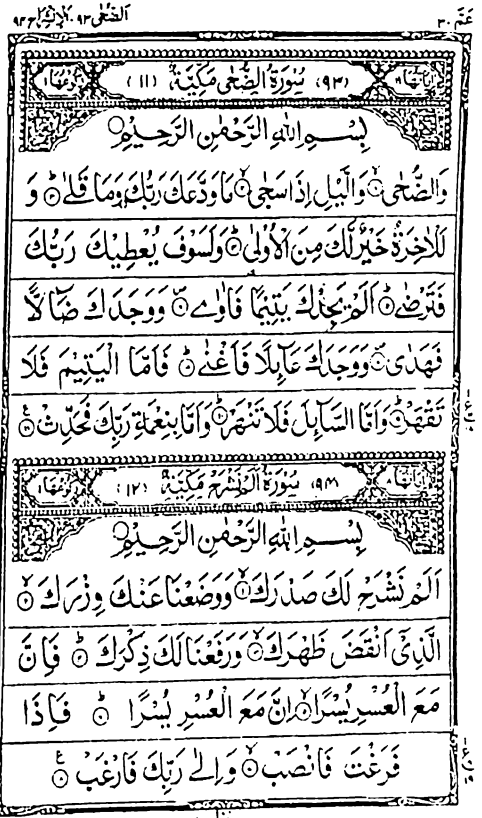 عَمَّ ٣٠
الضُّحٰى ٩٣، الانشراح ٩٤
اٰيَاتُهَا (٩٣) سُوْرَةُ الضُّحٰى مَكِّيَّةٌ (١١) رُكُوْعُهَا ١
بِسْمِ اللّٰهِ الرَّحْمٰنِ الرَّحِيْمِ
وَالضُّحٰى ۙ۝١ وَالَّيْلِ اِذَا سَجٰى ۙ۝٢ مَا وَدَّعَكَ رَبُّكَ وَمَا قَلٰى ؕ۝٣ وَ
لَلْاٰخِرَةُ خَيْرٌ لَّكَ مِنَ الْاُوْلٰى ؕ۝٤ وَلَسَوْفَ يُعْطِيْكَ رَبُّكَ
فَتَرْضٰى ؕ۝٥ اَلَمْ يَجِدْكَ يَتِيْمًا فَاٰوٰى ۪۝٦ وَوَجَدَكَ ضَآلًّا
فَهَدٰى ۪۝٧ وَوَجَدَكَ عَآئِلًا فَاَغْنٰى ؕ۝٨ فَاَمَّا الْيَتِيْمَ فَلَا
تَقْهَرْ ؕ۝٩ وَاَمَّا السَّآئِلَ فَلَا تَنْهَرْ ؕ۝١٠ وَاَمَّا بِنِعْمَةِ رَبِّكَ فَحَدِّثْ ۝١١
اٰيَاتُهَا ٨ (٩٤) سُوْرَةُ اَلَمْ نَشْرَحْ مَكِّيَّةٌ (١٢) رُكُوْعُهَا ١
بِسْمِ اللّٰهِ الرَّحْمٰنِ الرَّحِيْمِ
اَلَمْ نَشْرَحْ لَكَ صَدْرَكَ ۙ۝١ وَوَضَعْنَا عَنْكَ وِزْرَكَ ۙ۝٢
الَّذِيْٓ اَنْقَضَ ظَهْرَكَ ۙ۝٣ وَرَفَعْنَا لَكَ ذِكْرَكَ ؕ۝٤ فَاِنَّ
مَعَ الْعُسْرِ يُسْرًا ۙ۝٥ اِنَّ مَعَ الْعُسْرِ يُسْرًا ؕ۝٦ فَاِذَا
فَرَغْتَ فَانْصَبْ ۙ۝٧ وَاِلٰى رَبِّكَ فَارْغَبْ ۝٨